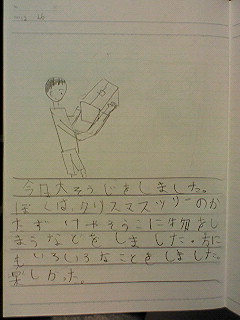 今日大そうじをしました。
ぼくは、クリスマスツリーのか
たずけやそうこに物をし
まうなどをしました。方に
もいろいろなことをしました。
楽しかった。